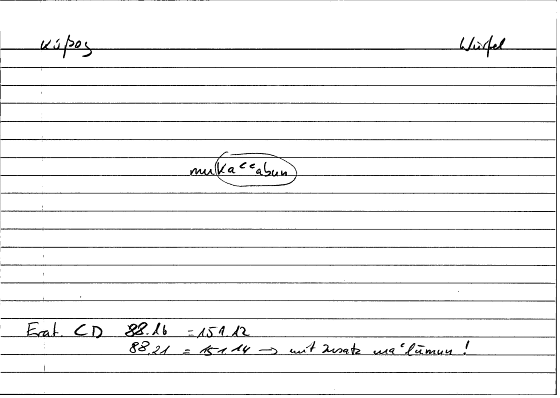 κύβος Würfel
mukaʿʿabun
Erat. CD 88.16 = 151.12
88.21 = 151.14 → mit Zusatz maʿlūmun !